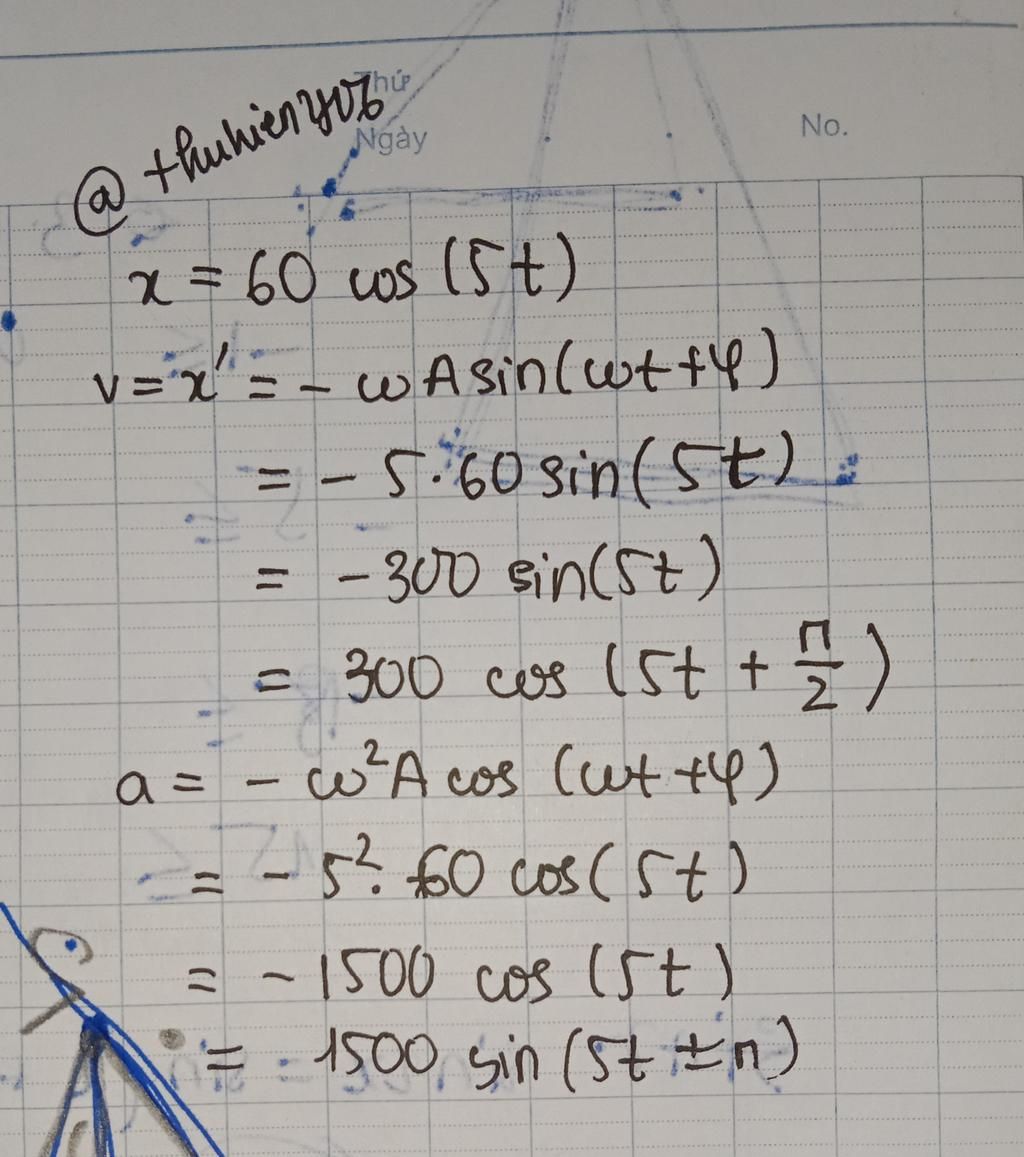 Thứ
Ngày
No.
@thuhienyo76
x = 60 cos (5t)
v = x' = - ωA sin(ωt + φ)
= - 5.60 sin(5t)
= - 300 sin(5t)
= 300 cos (5t + π/2)
a = - ω²A cos (ωt + φ)
= - 5². 60 cos(5t)
= - 1500 cos (5t)
= 1500 sin (5t ± π)